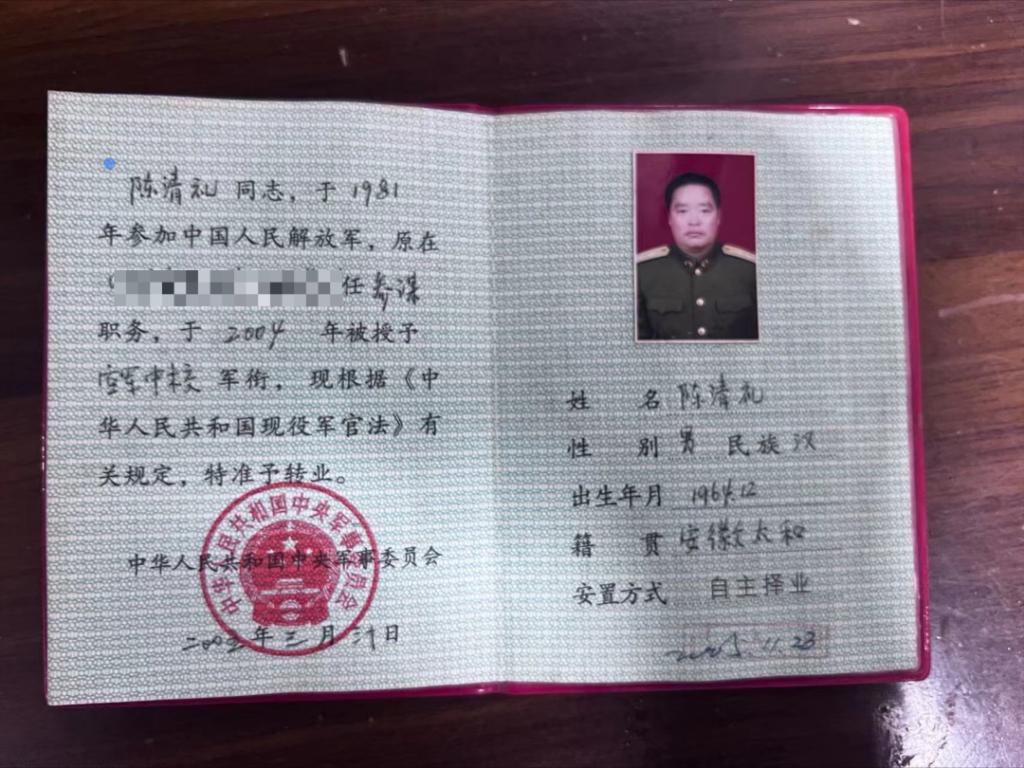 陈清礼 同志，于 1981
年参加中国人民解放军，原在
任 参谋
职务，于 2004 年被授予
空军中校 军衔，现根据《中
华人民共和国现役军官法》有
关规定，特准予转业。
中华人民共和国中央军事委员会
中华人民共和国中央军事委员会
年三月 日
姓 名 陈清礼
性 别 男 民族 汉
出生年月 1964.12
籍 贯 安徽太和
安置方式 自主择业
11.23